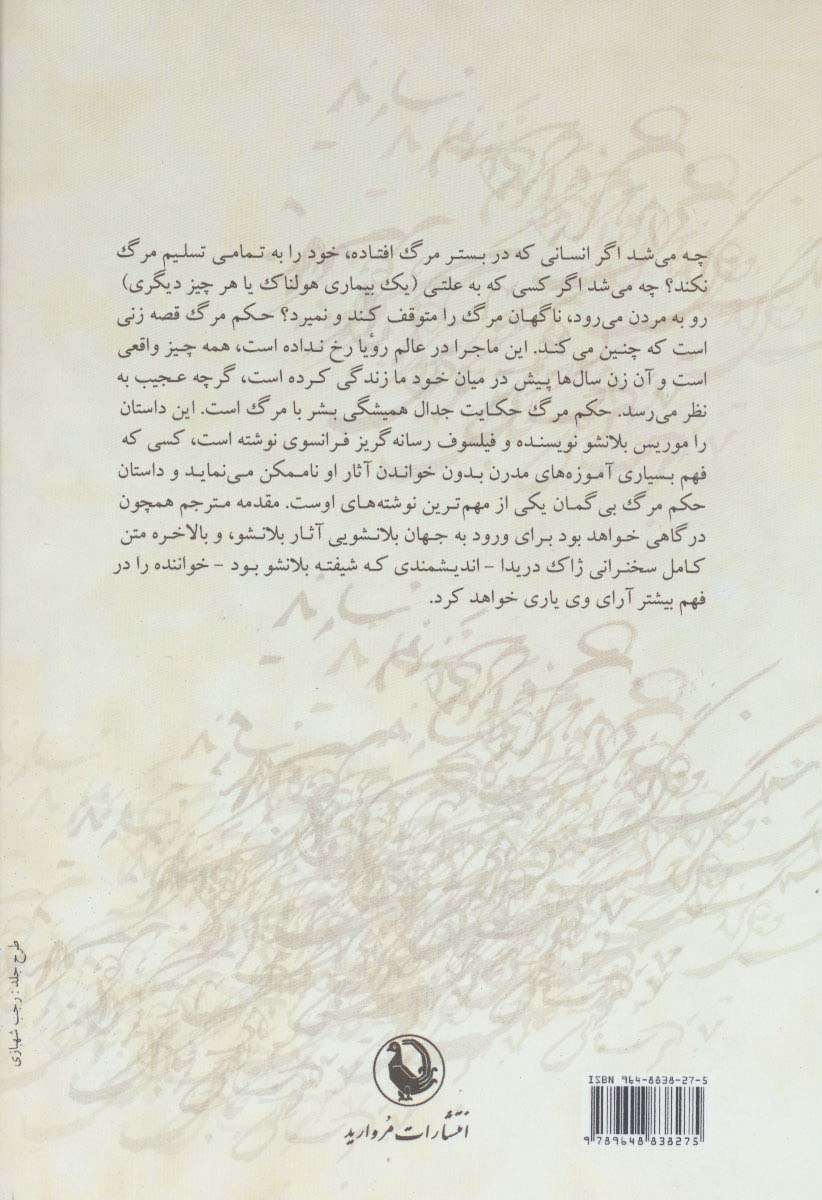 چه می‌شد اگر انسانی که در بستر مرگ افتاده، خود را به تمامی تسلیم مرگ
نکند؟ چه می‌شد اگر کسی که به علتی (یک بیماری هولناک یا هر چیز دیگری)
رو به مردن می‌رود، ناگهان مرگ را متوقف کند و نمیرد؟ حکم مرگ قصه زنی
است که چنین می‌کند. این ماجرا در عالم رؤیا رخ نداده است، همه چیز واقعی
است و آن زن سال‌ها پیش در میان خود ما زندگی کرده است، گرچه عجیب به
نظر می‌رسد. حکم مرگ حکایت جدال همیشگی بشر با مرگ است. این داستان
را موریس بلانشو نویسنده و فیلسوف رسانه‌گریز فرانسوی نوشته است، کسی که
فهم بسیاری آموزه‌های مدرن بدون خواندن آثار او ناممکن می‌نماید و داستان
حکم مرگ بی‌گمان یکی از مهم‌ترین نوشته‌های اوست. مقدمه مترجم همچون
درگاهی خواهد بود برای ورود به جهان بلانشویی آثار بلانشو، و بالاخره متن
کامل سخنرانی ژاک دریدا – اندیشمندی که شیفته بلانشو بود – خواننده را در
فهم بیشتر آرای وی یاری خواهد کرد.
طرح جلد : رجب شهبازی
انتشارات مروارید
ISBN 964-8838-27-5
9 789648 838275